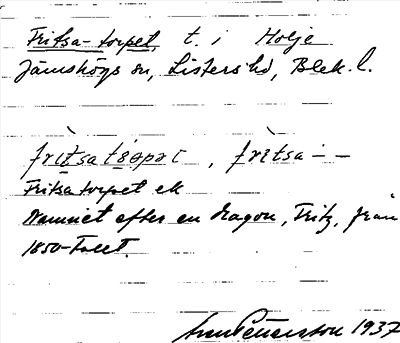 Fritsa-torpet, t. i Holje
Jämshögs sn, Listers hd, Blek. l.
frìtsatɵrpət, frìtsa - -
Fritsatorpet ek
Namnet efter en dragon, Fritz, från
1850-talet.
Pettersson 1937